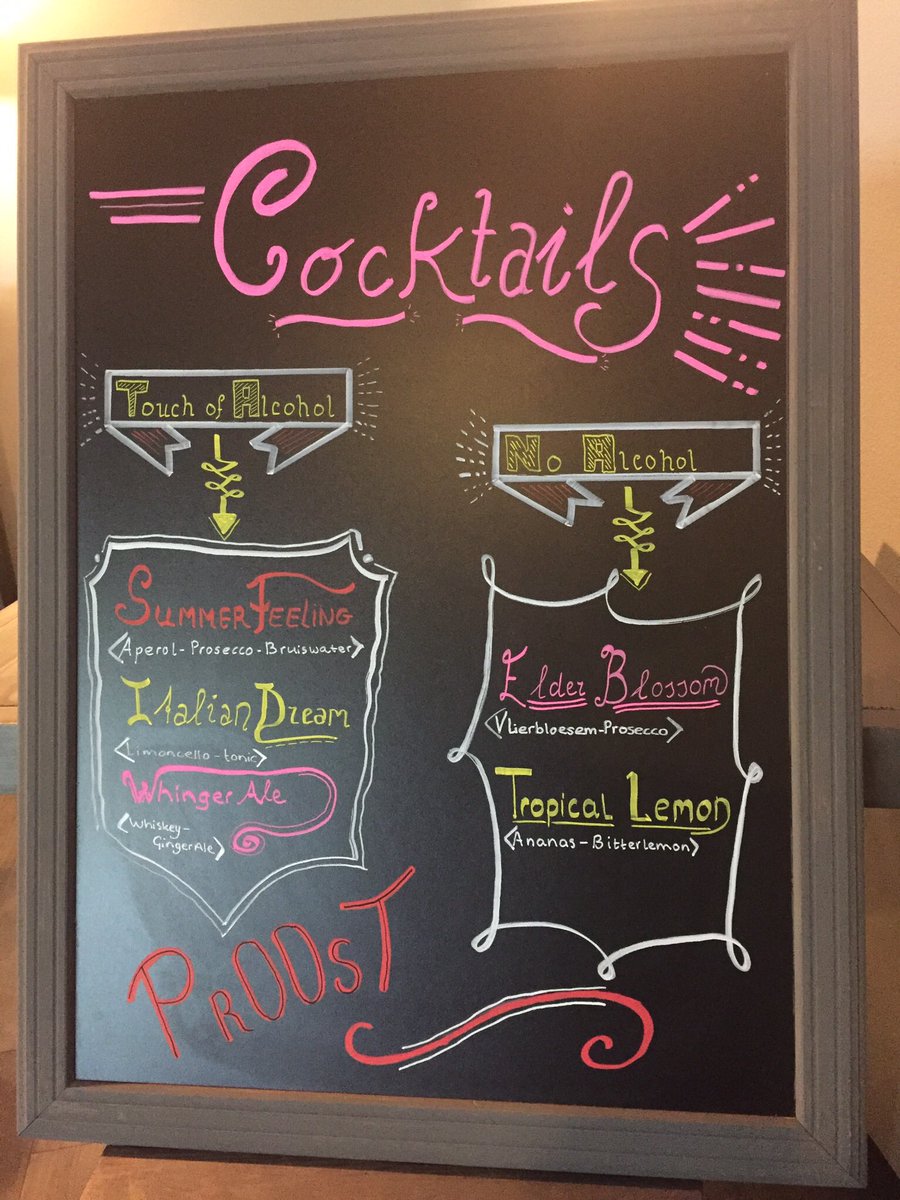 Cocktails
Touch of Alcohol
SUMMER FEELING
<Aperol-Prosecco-Bruiswater>
Italian Dream
<Limoncello-tonic>
Whinger Ale
<Whiskey-
GingerAle>
No Alcohol
Elder Blossom
<Vlierbloesem-Prosecco>
Tropical Lemon
<Ananas-Bitterlemon>
PrOOsT